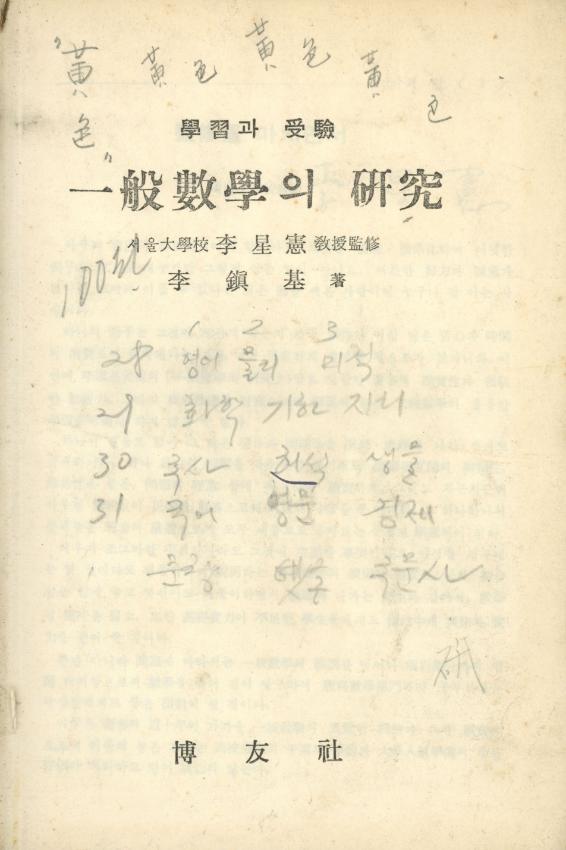 "黃 黃色 黃色 黃色
色"
學習과 受驗
一般數學의 硏究
서울大學校 李星憲 敎授監修
李鎭基 著
1 2 3
28 영어 물리 미학
29 화학 기하 지리
30 국사 생물
31 국어 영문 경제
국문사
硏
博友社